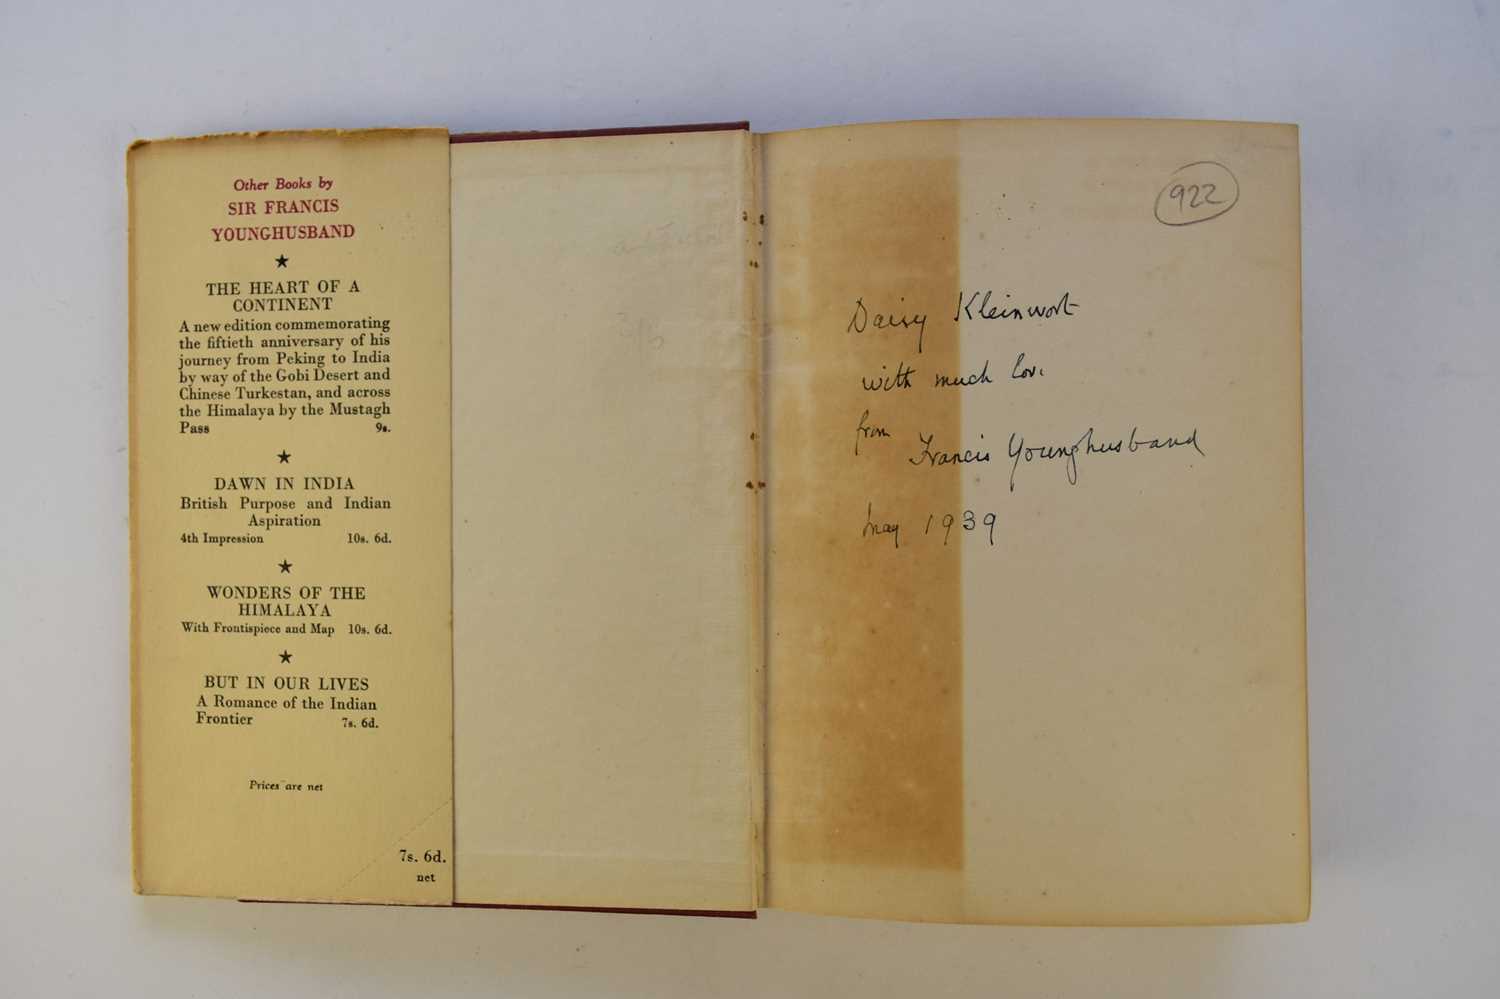 Other Books by
SIR FRANCIS
YOUNGHUSBAND
★
THE HEART OF A
CONTINENT
A new edition commemorating
the fiftieth anniversary of his
journey from Peking to India
by way of the Gobi Desert and
Chinese Turkestan, and across
the Himalaya by the Mustagh
Pass 9s.
★
DAWN IN INDIA
British Purpose and Indian
Aspiration
4th Impression 10s. 6d.
★
WONDERS OF THE
HIMALAYA
With Frontispiece and Map 10s. 6d.
★
BUT IN OUR LIVES
A Romance of the Indian
Frontier 7s. 6d.
Prices are net
7s. 6d.
net
922
Daisy Kleinwort
with much love
from
Francis Younghusband
May 1939